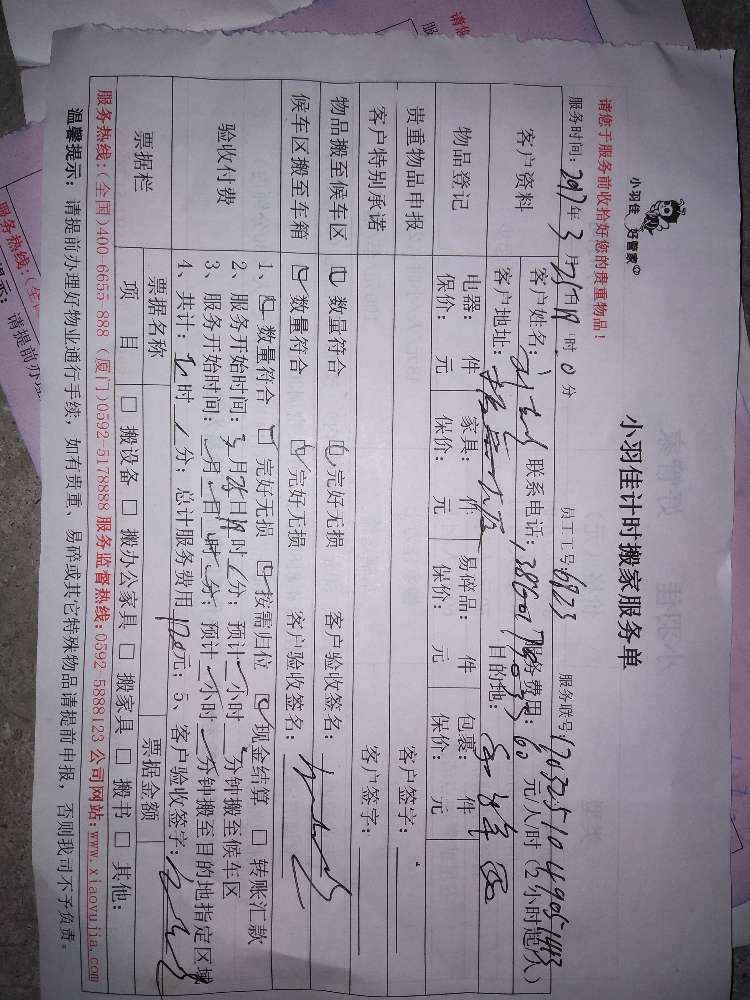 小羽佳 好管家
小羽佳计时搬家服务单
请您于服务前收拾好您的贵重物品!
服务时间: 2017年3月25日19时0分 员工工号: 6923 服务联号:
客户资料 客户姓名: 联系电话: 服务费用: 60元/人/时(2小时起)
客户地址: 目的地:
物品登记 电器: 件 家具: 件 易碎品: 件 包裹: 件
保价: 元 保价: 元 保价: 元 保价: 元
贵重物品申报 客户签字:
客户特别承诺 客户签字:
物品搬至候车区 数量符合 完好无损 客户验收签名:
候车区搬至车箱 数量符合 完好无损 客户验收签名:
验收付费 1、 数量符合 完好无损 按需归位 现金结算 □ 转账汇款
2、服务开始时间: 3月25日19时 分; 预计 小时 分钟搬至候车区
3、服务开始时间: 月 日 时 分; 预计 小时 分钟搬至目的地指定区域
4、共计: 2时 分; 总计服务费用 120元; 5、客户验收签字:
票据栏 票据名称 票据金额
项 目 □ 搬设备 □ 搬办公家具 □ 搬家具 □ 搬书 □ 其他:
服务热线:(全国)400-6655-888 (厦门)0592-5178888 服务监督热线:0592-5888123 公司网站:www.xiaoyujia.com
温馨提示: 请提前办理好物业通行手续, 如有贵重、易碎或其它特殊物品请提前申报, 否则我司不予负责。